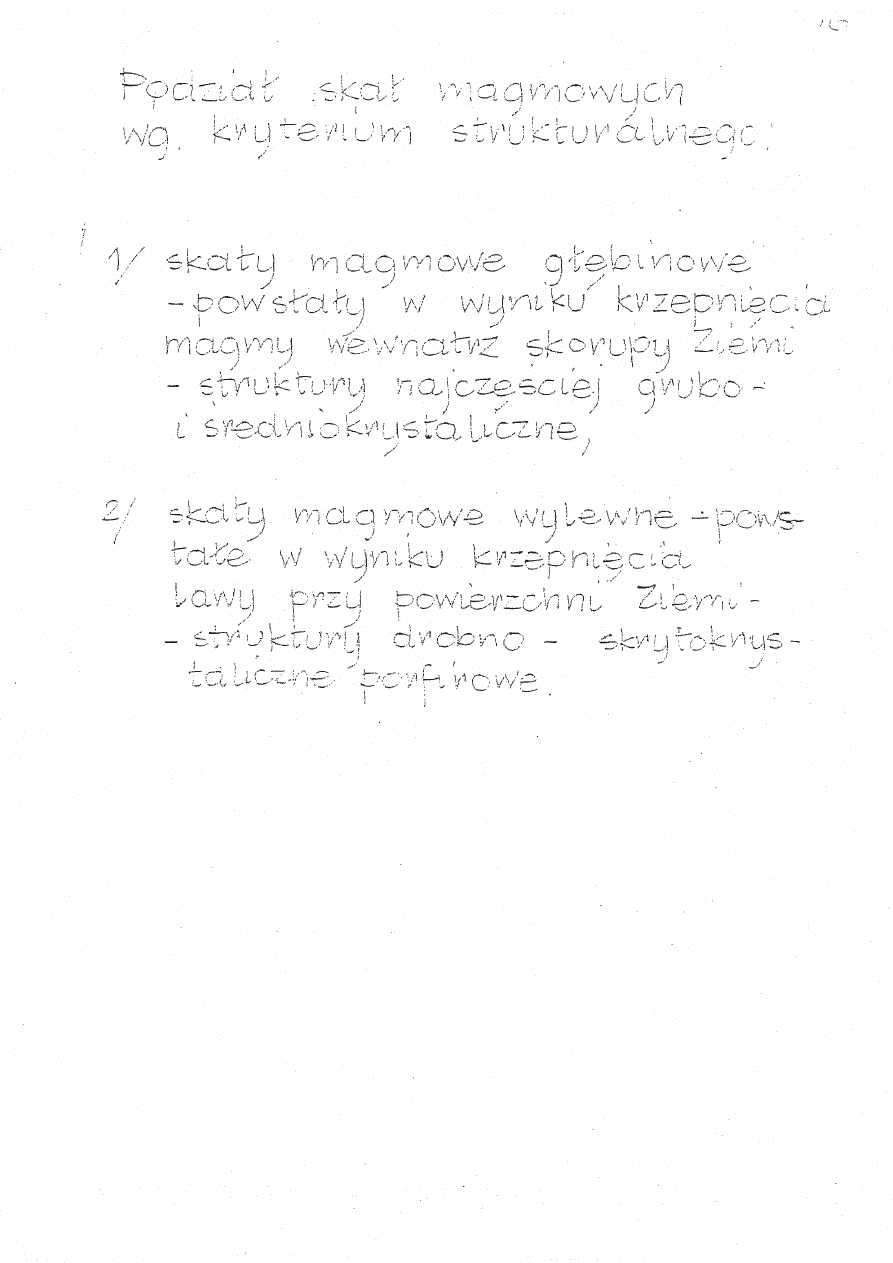 Podział skał magmowych
wg. kryterium strukturalnego:
1/ skały magmowe głębinowe
- powstały w wyniku krzepnięcia
magmy wewnatrz skorupy Ziemi
- struktury najczęściej grubo -
i średniokrystaliczne,
2/ skały magmowe wylewne - pows-
tałe w wyniku krzepnięcia
lawy przy powierzchni Ziemi -
- struktury drobno - skrytokrys-
taliczne porfirowe.